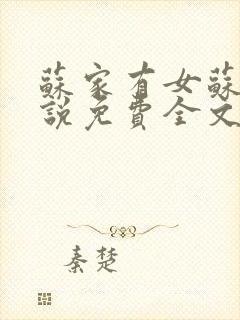 蘇家有女蘇
說免費全文
秦楚